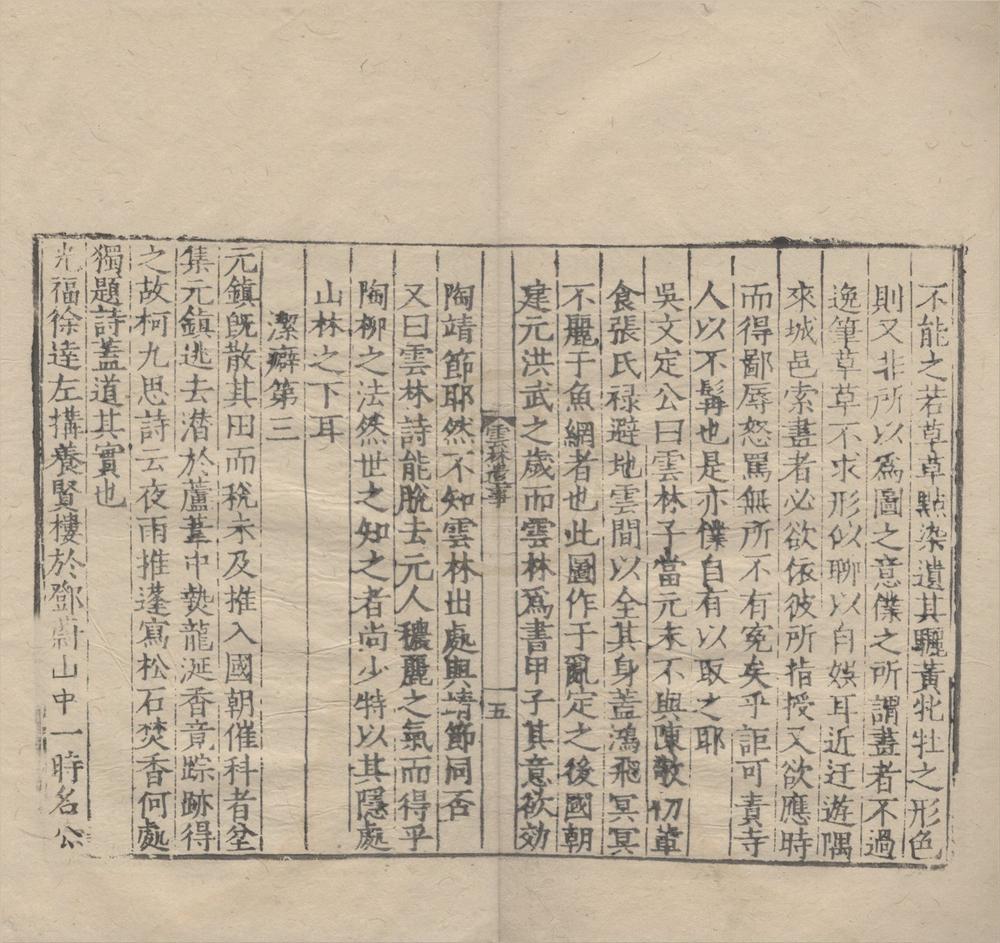 不能之若草草點染遺其驪黃牝牡之形色
則又非所以爲圖之意僕之所謂畫者不過
逸筆草草不求形似聊以自娛耳近迂遊隅
來城邑索畫者必欲依彼所指授又欲應時
而得鄙辱怒罵無所不有冤矣乎詎可責寺
人以不髯也是亦僕自有以取之耶
吳文定公曰雲林子當元末不與陳敬初輩
食張氏祿避地雲間以全其身蓋鴻飛冥冥
不麗于魚網者也此圖作于亂定之後國朝
建元洪武之歲而雲林爲書甲子其意欲効
雲林遺事
五
陶靖節耶然不知雲林出處與靖節同否
又曰雲林詩能脫去元人穠麗之氣而得乎
陶柳之法然世之知之者尚少特以其隱處
山林之下耳
潔癖第三
元鎮旣散其田而稅未及推入國朝催科者坌
集元鎮逃去潛於蘆葦中爇龍涎香竟踪跡得
之故柯九思詩云夜雨推蓬寫松石焚香何處
獨題詩蓋道其實也
光福徐達左搆養賢樓於鄧蔚山中一時名公